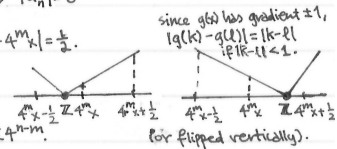 since g(x) has gradient ±1,
|g(k) - g(l)| = |k-l|
if |k-l| < 1.
4^m x| = 1/2.
4^m x - 1/2 ℤ 4^m x 4^m x + 1/2
4^m x - 1/2 4^m x ℤ 4^m x + 1/2
4^{n-m}.
(or flipped vertically).